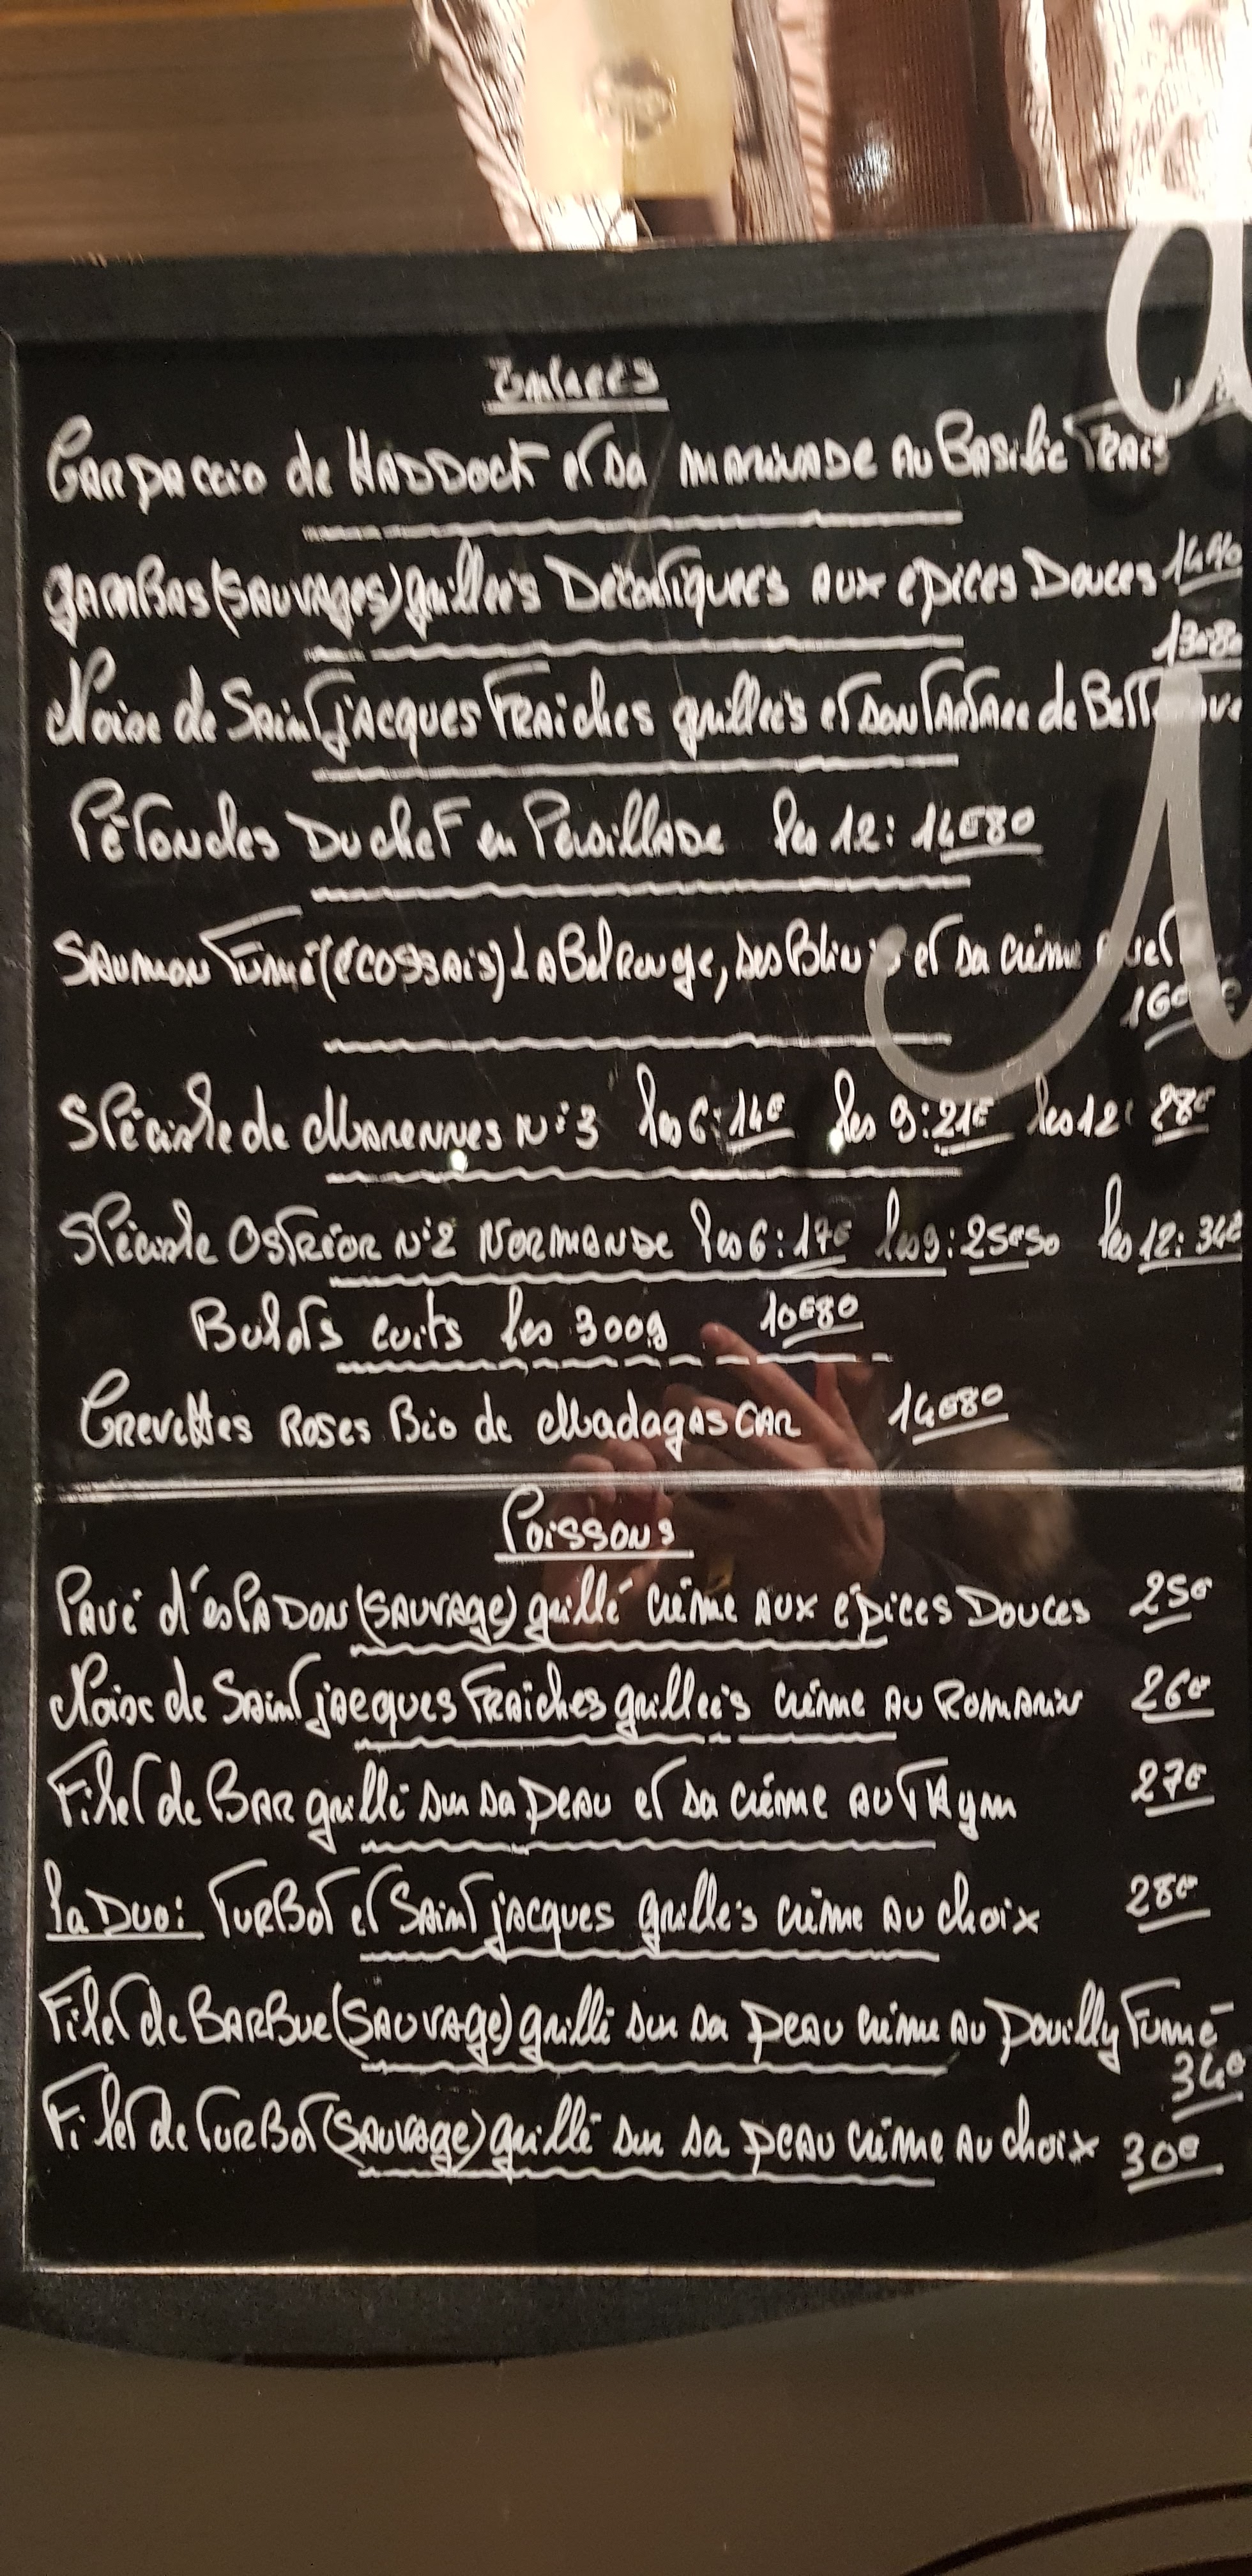 Entrées
Carpaccio de HADDOCK et sa MARINADE AU BASilic FRAis
GAMBAS (SAUVAGES) grillées Décortiquées AUX épices Douces 14€40
13€80
Noix de Saint jacques FRAiches grillées et son TARTARE de
Pétoncles Du cheF en Persillade les 12: 14€80
SAUMON Fumé (écossAis) LABel Rouge, ses Blinis et sa crème
Spéciale de Marennes N°3 les 6: 14€ les 9: 21€ les 12: 28€
Spéciale OSTRéOR N°2 NORMANDE les 6: 17€ les 9: 25€50 les 12: 34€
Bulots cuits les 300g 10€80
Crevettes Roses Bio de MadagasCAR 14€80
Poissons
Pavé d'esPADON (SAUVAGE) grillé crème AUX épices Douces 25€
Noix de Saint jacques FRAiches grillées crème AU ROMARIN 26€
Filet de BAR grillé sur sa peau et sa crème AU Thym 27€
La Duo: TURBOT et Saint jacques grillés crème AU choix 28€
Filet de BARBue (SAUVAGE) grillé sur sa peau crème AU Pouilly Fumé
34€
Filet de TURBOT (SAUVAGE) grillé sur sa peau crème AU choix 30€